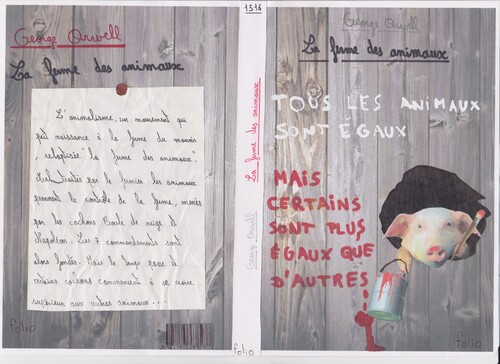 George Orwell
La ferme des animaux
L'animalisme, un mouvement qui
prit naissance à la ferme du manoir
rebaptisée "la ferme des animaux".
Maltraités par le fermier les animaux
prennent le contrôle de la ferme, menés
par les cochons Boule de neige et
Napoléon. Les 7 commandements sont
alors fondés. Mais le temps passe et
certains cochons commencent à se croire
supérieur aux autres animaux...
folio
1516
La ferme des animaux
George Orwell
folio
George Orwell
La ferme des animaux
TOUS LES ANIMAUX
SONT ÉGAUX
MAIS
CERTAINS
SONT PLUS
ÉGAUX QUE
D'AUTRES!
folio